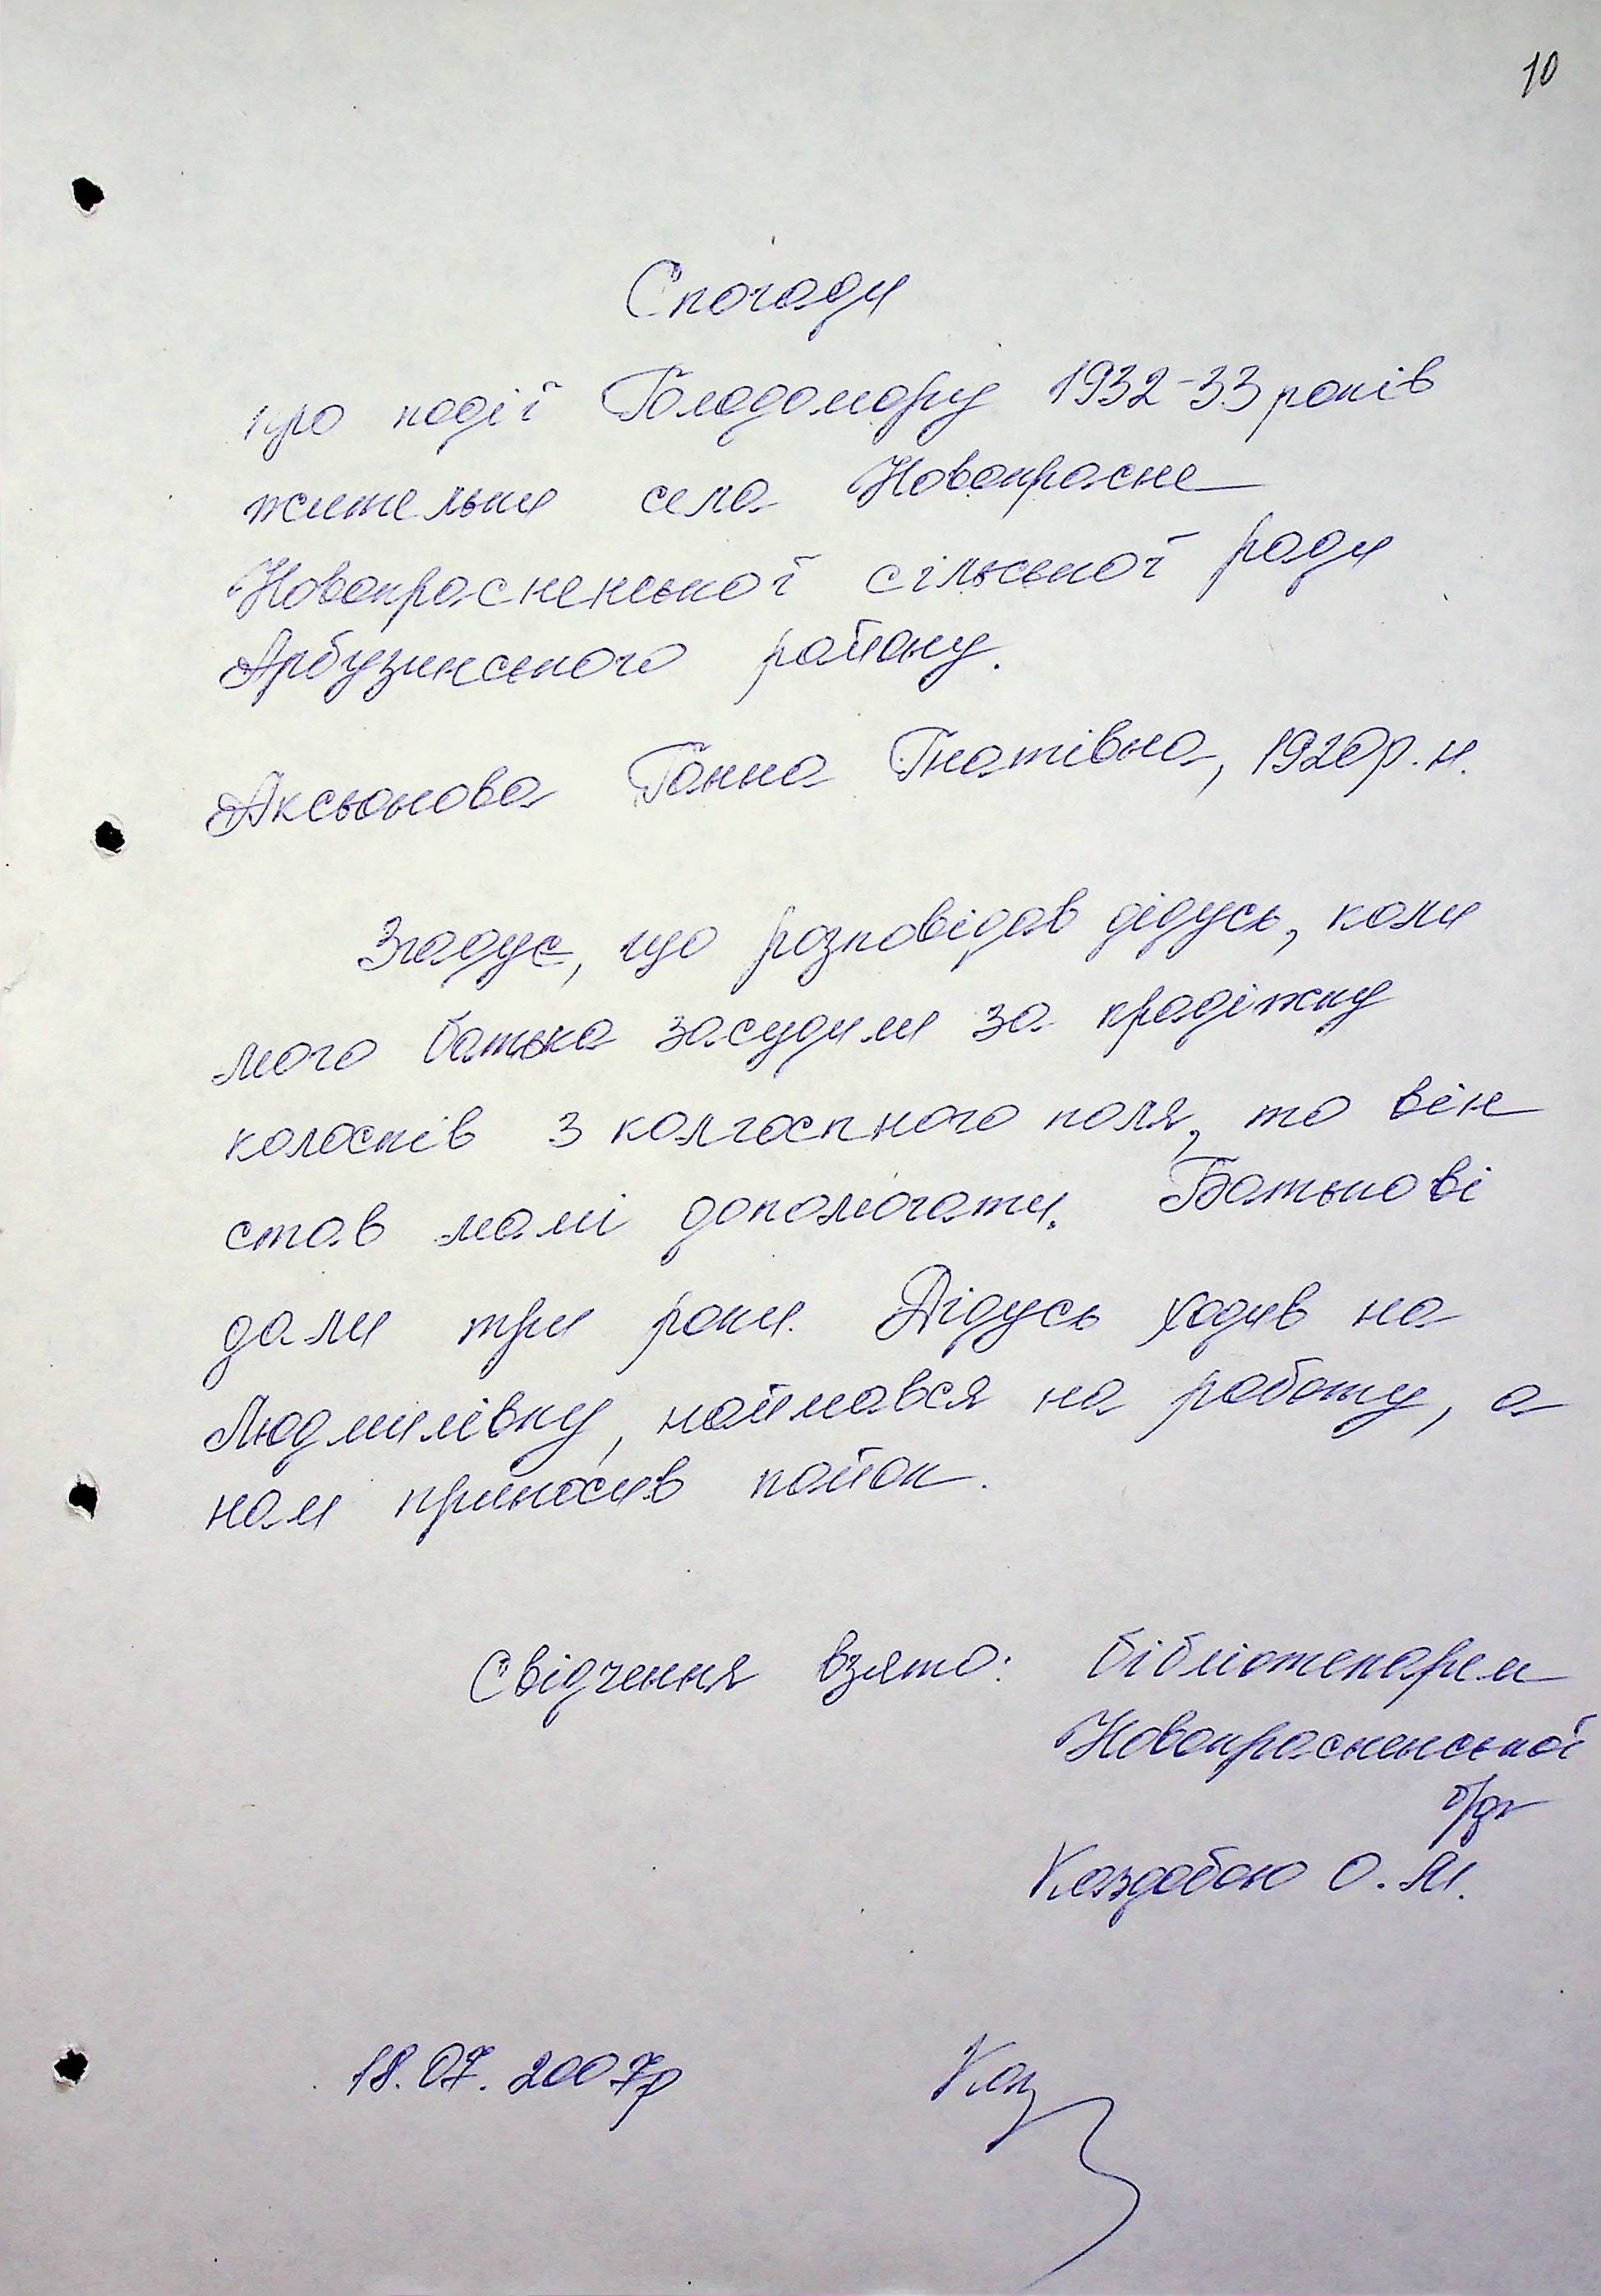 10
Спогади
про події Голодомору 1932-33 років
жительки села Новокрасне
Новокрасненської сільської ради
Арбузинського району.
Аксьонова Ганна Гнатівна, 1920р.н.
Згадує, що розповідав дідусь, коли
мого батька засудили за крадіжку
колосків з колгоспного поля, то він
став мамі допомогати. Батькові
дали три роки. Дідусь ходив на
Людмилівку, наймався на роботу, а
нам приносив пайок.
Свідчення взято: бібліотекарем
Новокрасненської
б/ф
Каздобою О.М.
18.07.2007р
Каз